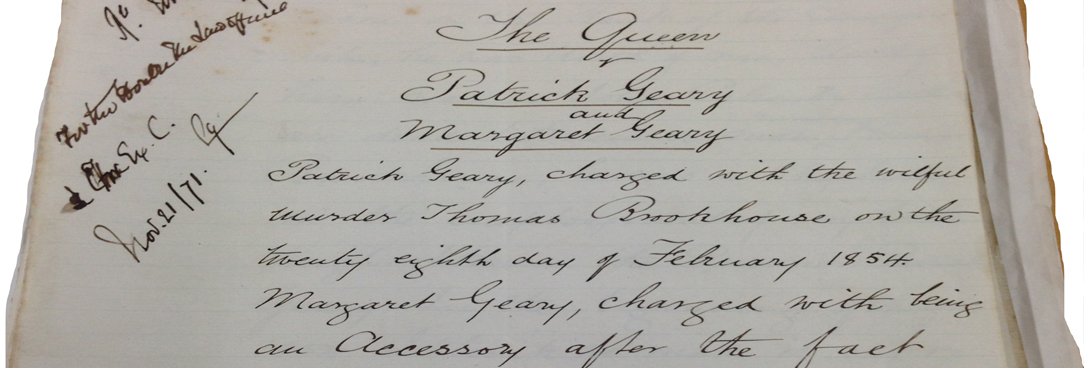 The Queen
v
Patrick Geary
and
Margaret Geary
Patrick Geary, charged with the wilful
murder Thomas Brookhouse on the
twenty eighth day of February 1854.
Margaret Geary, charged with being
an Accessory after the fact
For the
Nov. 21/71.